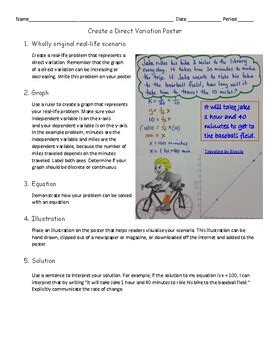 Name Date Period
Create a Direct Variation Poster
1. Wholly original real-life scenario
Create a real-life problem that represents
a direct variation. Remember that the graph
of a direct variation can be increasing or
decreasing. Write this problem on your poster.
2. Graph
Use a ruler to create a graph that represents
your real-life problem. Make sure your
independent variable is on the x-axis
and dependent variable is on the y-axis.
In the example problem, minutes are the
independent variable and miles are the
dependent variable, because the number of
miles traveled depends on the minutes
traveled. Label both axes. Determine if your
graph should be discrete or continuous.
3. Equation
Demonstrate how your problem can be solved
with an equation.
4. Illustration
Place an illustration on the poster that helps readers visualize your scenario. This illustration can be
hand drawn, clipped out of a newspaper or magazine, or downloaded off the internet and added to the
poster.
5. Solution
Use a sentence to interpret your solution. For example, if the solution to my equation is x = 100, I can
interpret that by writing "It will take Jake 1 hour and 40 minutes to ride his bike to the baseball field."
Explicitly communicate the rate of change.
Jake rides his bike 3 miles to the library
every day. It takes him 30 minutes to
make the trip. If Jake wants to ride his bike
to the baseball field, how long will it
take him to travel the 10 miles?
x = 100
It will take Jake
1 hour and 40
minutes to get
to the baseball
field.
Traveling by Bicycle